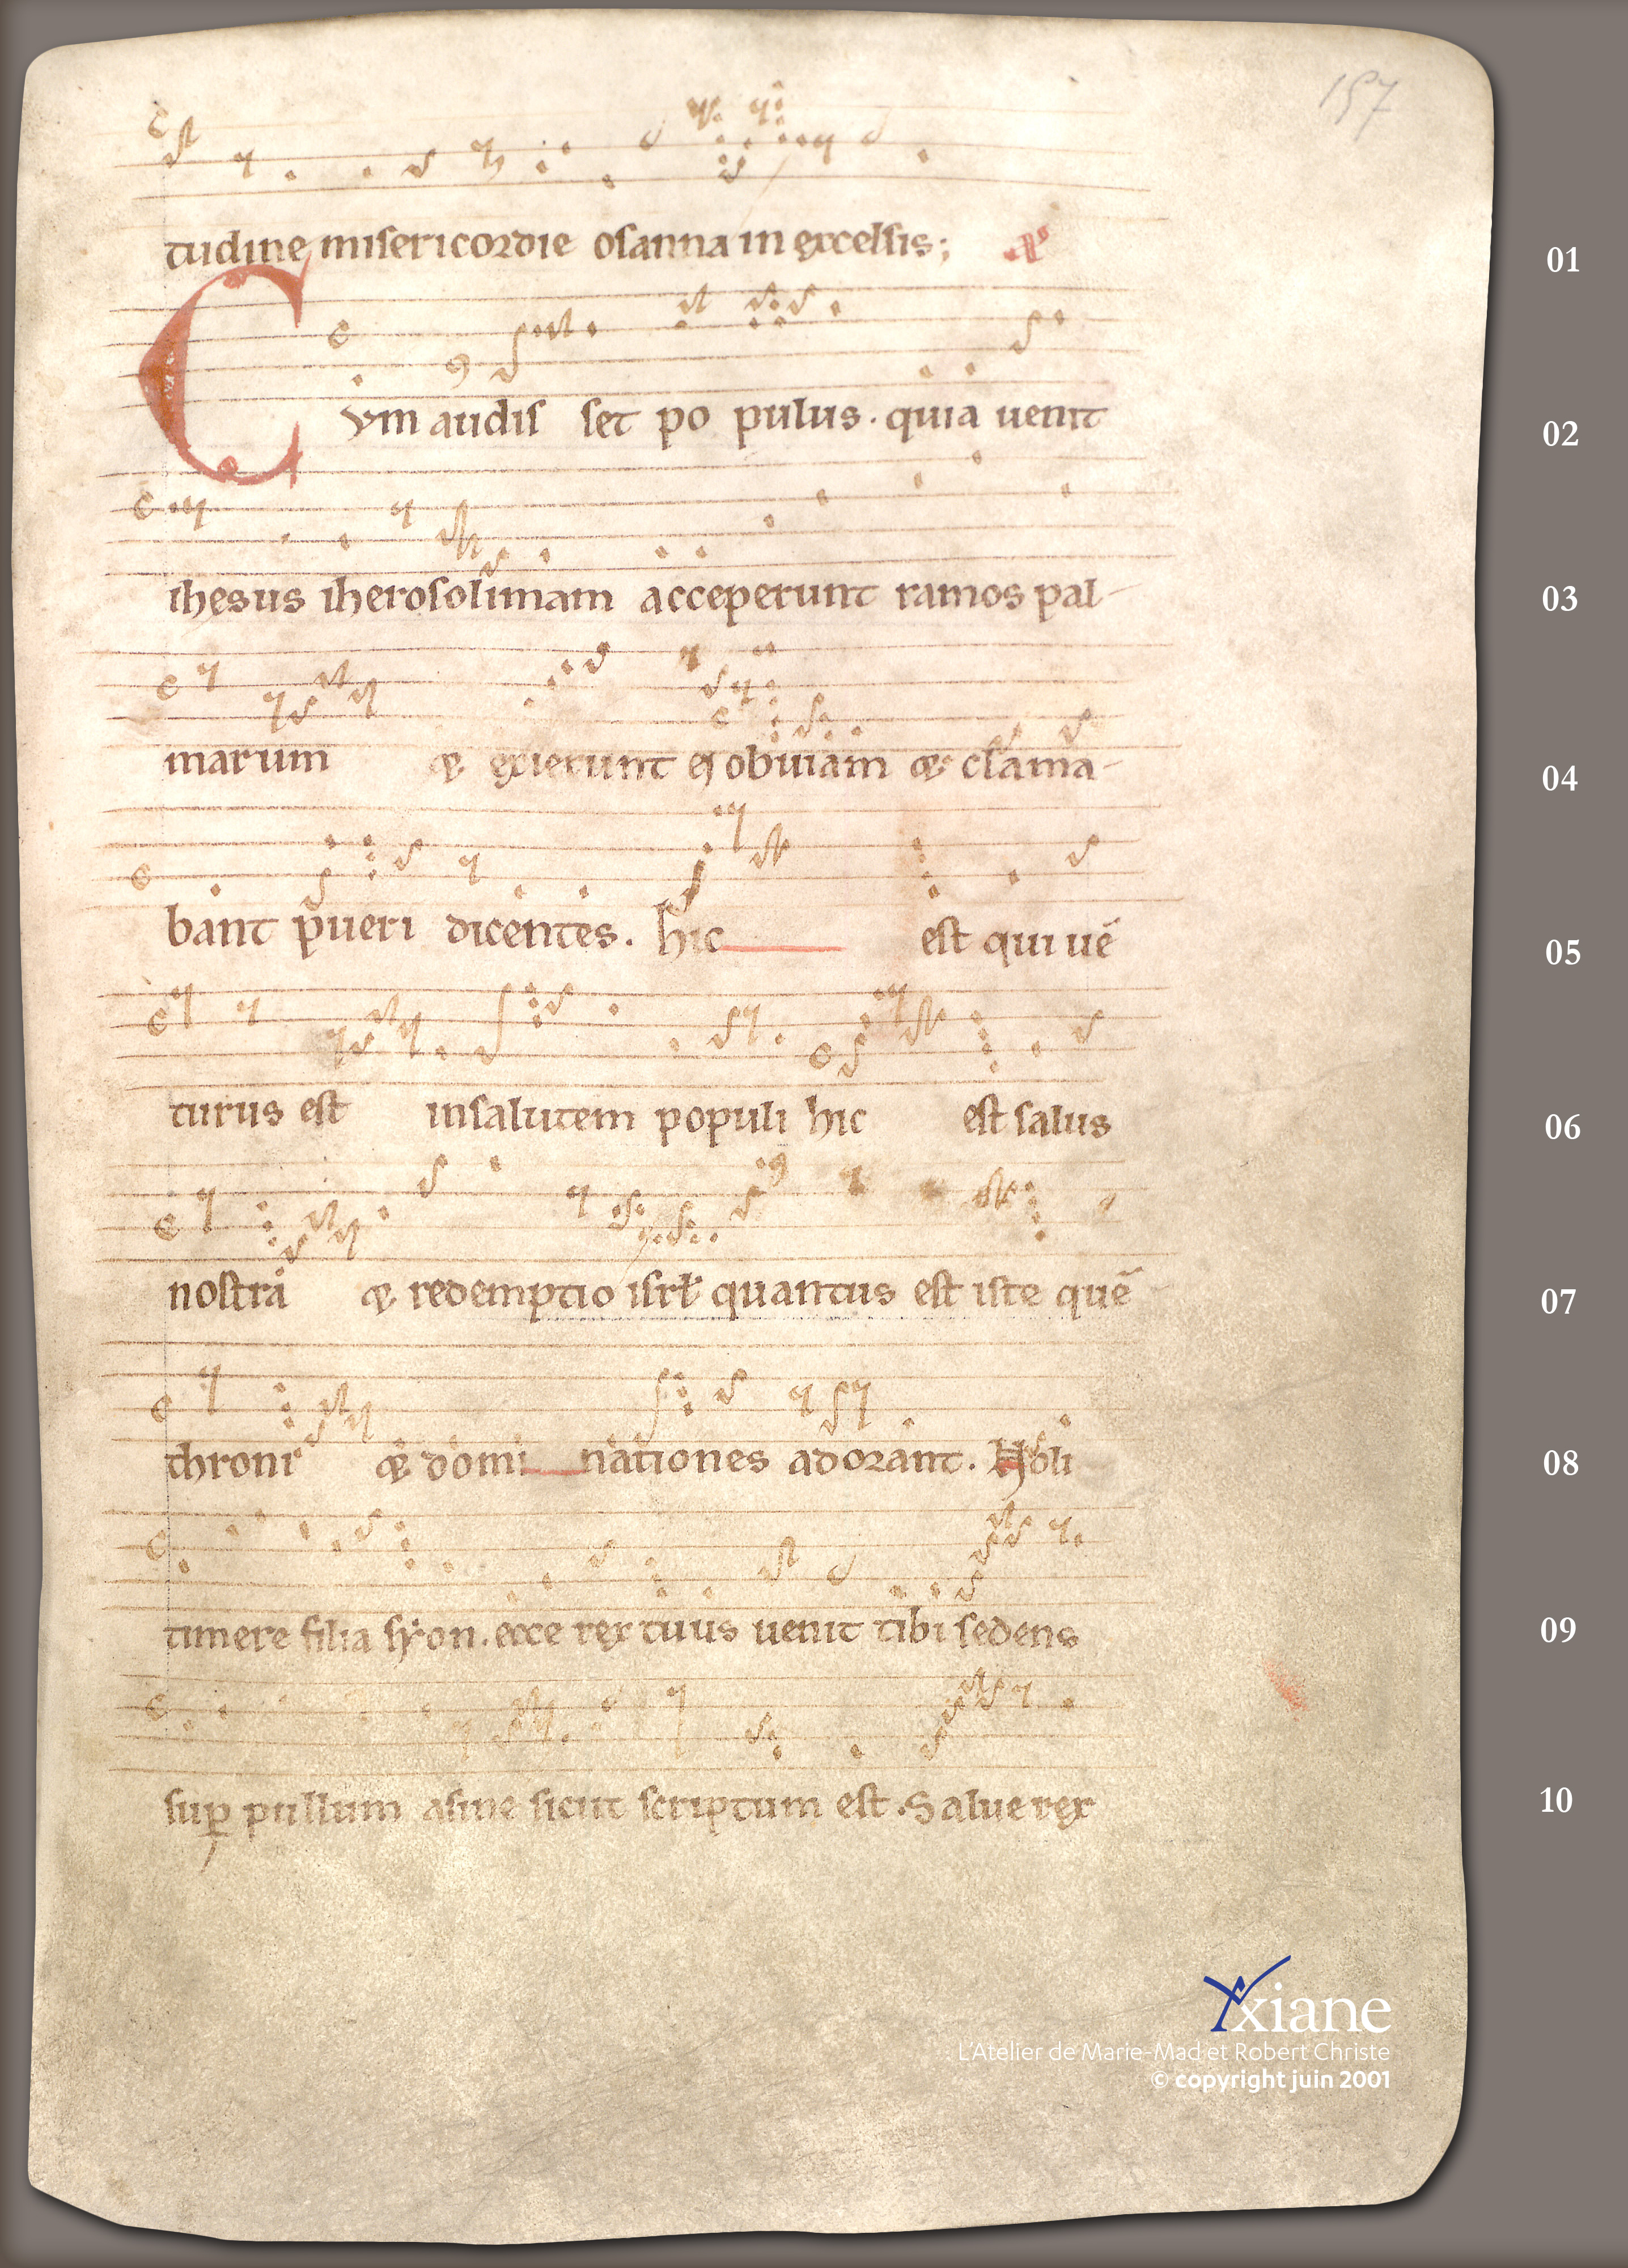 157
tudine misericordie osanna in excelsis; 01
Cvm audis set po pulus. quia uenit 02
ihesus iherosolimam acceperunt ramos pal- 03
marum & exierunt ei obuiam & clama- 04
bant pueri dicentes. hic est qui uē 05
turus est insalutem populi hic est salus 06
nostra & redemptio isrł quantus est iste quē 07
throni & domi nationes adorant. Noli 08
timere filia syon. ecce rex tuus uenit tibi sedens 09
suꝑ pullum asine sicut scriptum est. Salue rex 10
Yxiane
L'Atelier de Marie-Mad et Robert Christe
© copyright juin 2001